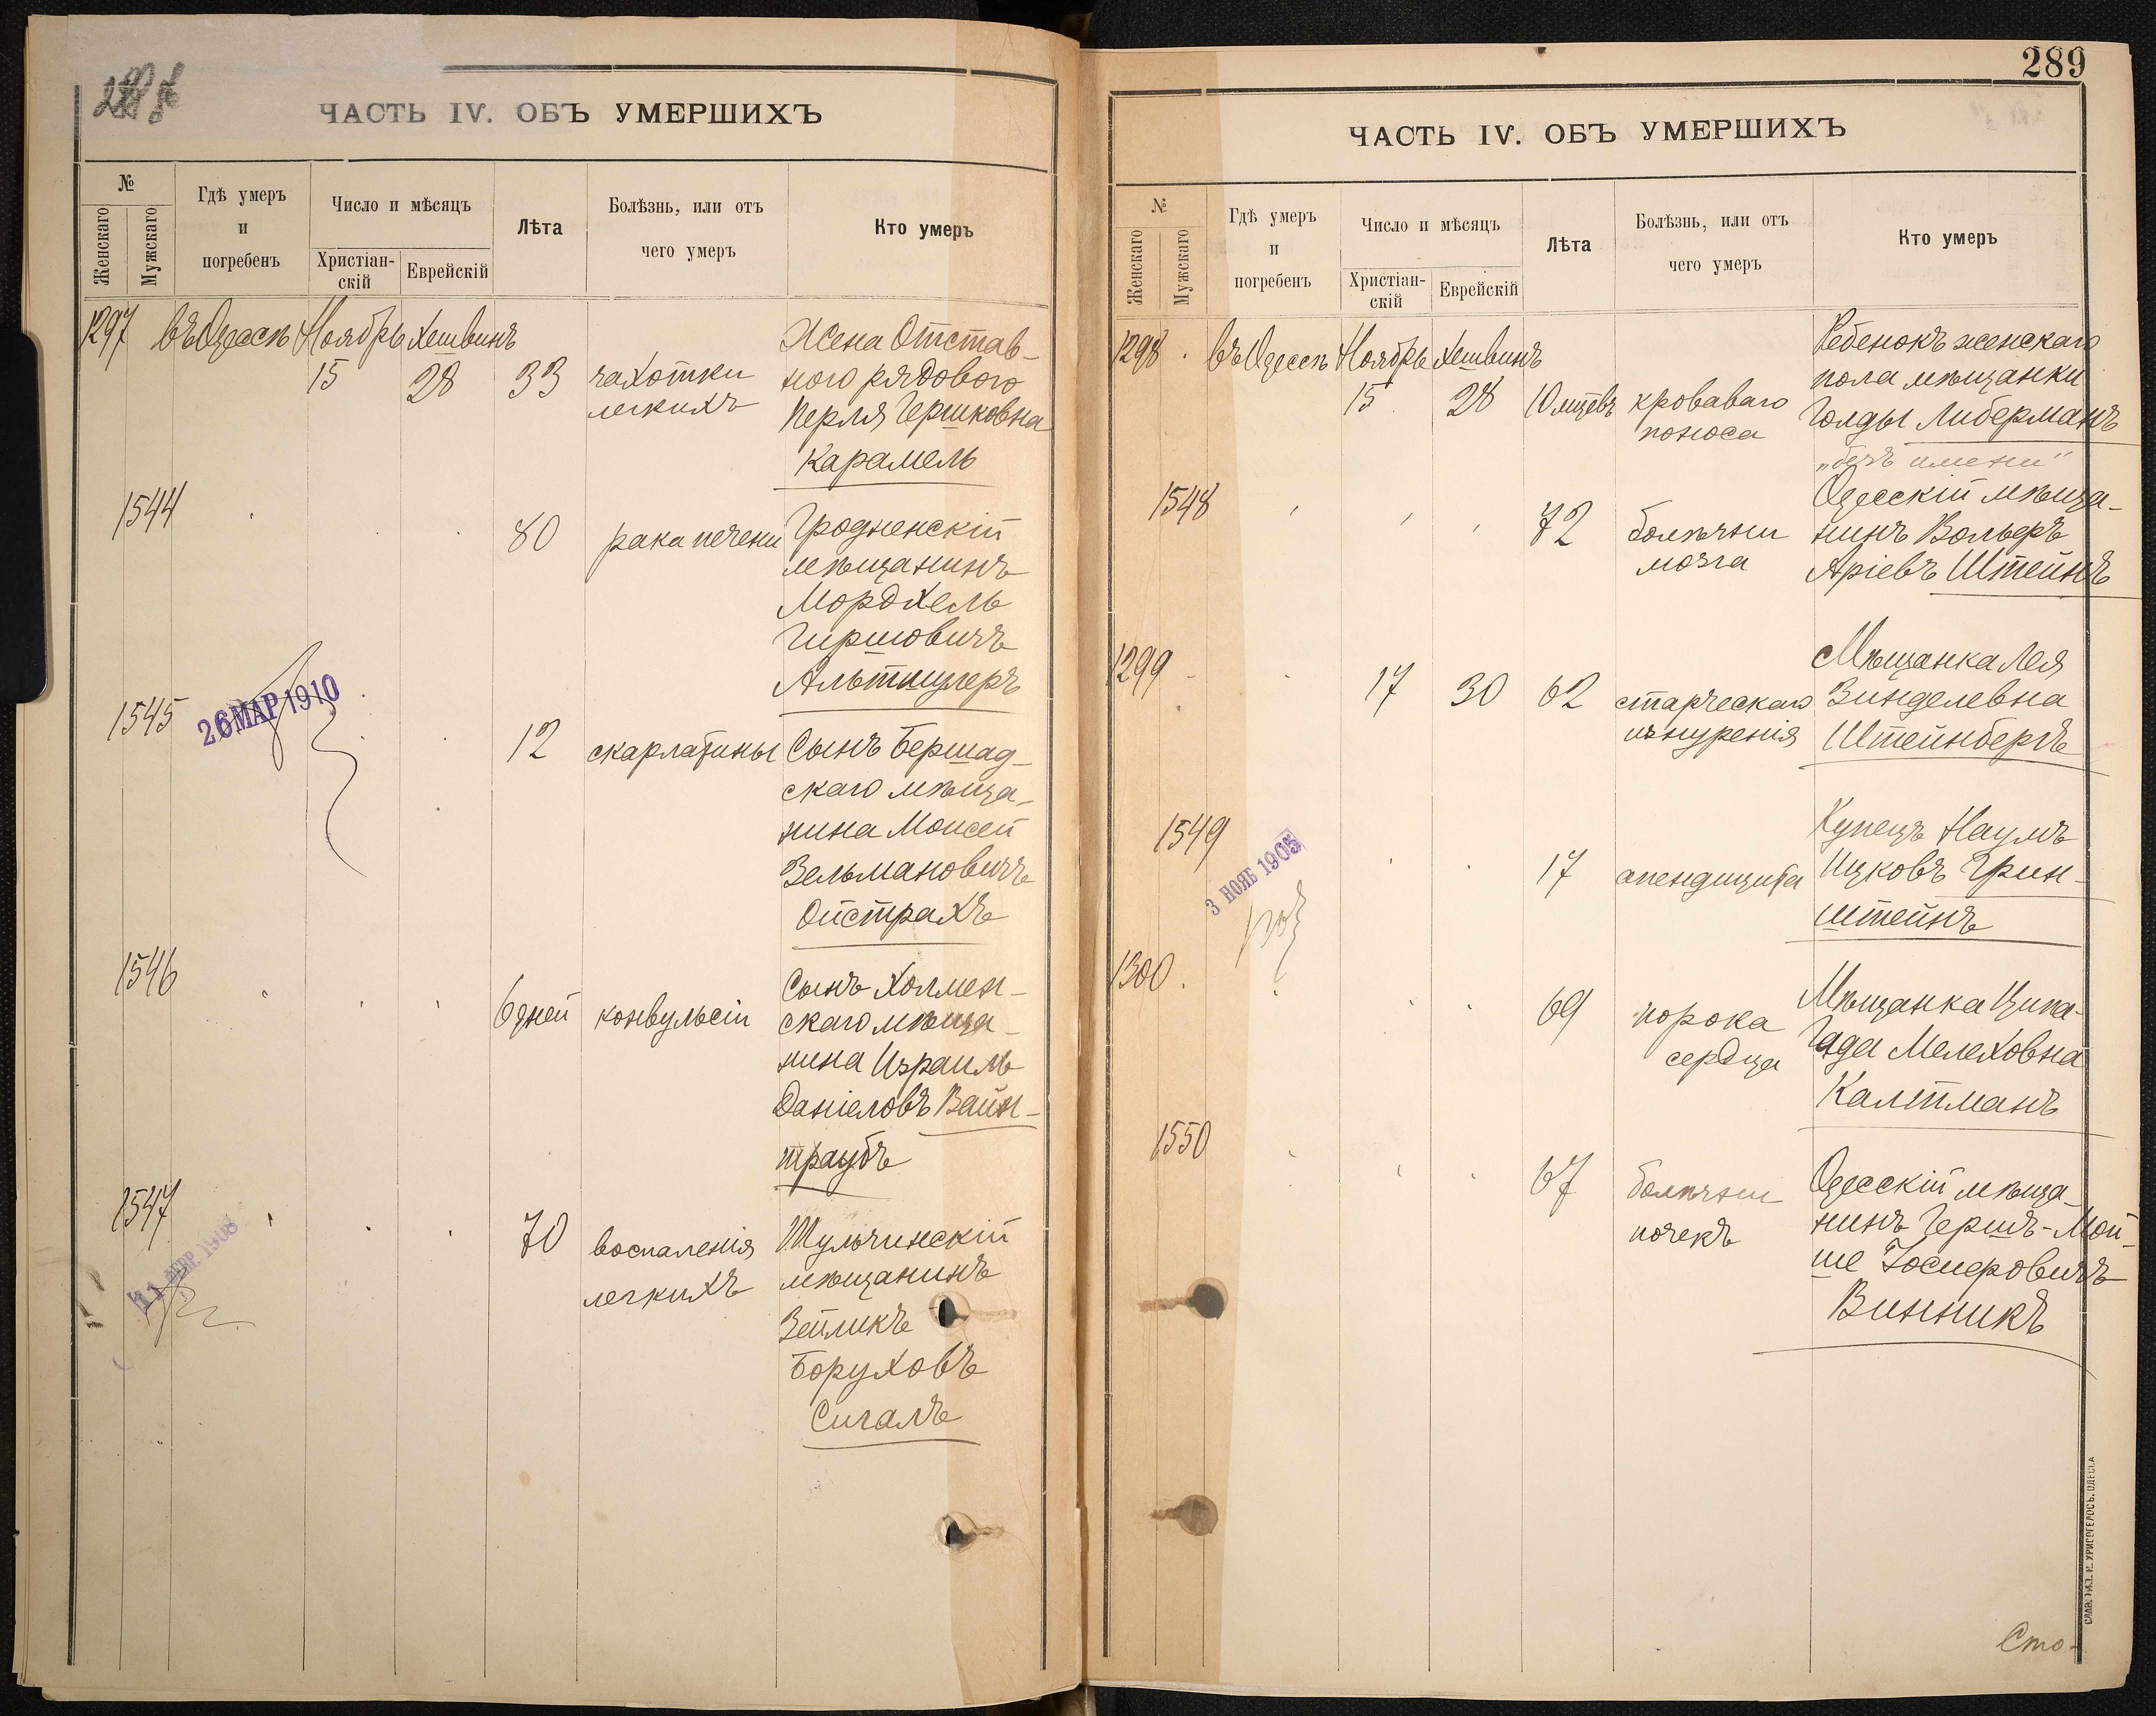 ЧАСТЬ IV. ОБЪ УМЕРШИХЪ
№
Женскаго
Мужскаго
Гдѣ умеръ
и
погребенъ
Число и мѣсяцъ
Христіан-
скій
Еврейскій
Лѣта
Болѣзнь, или отъ
чего умеръ
Кто умеръ
1297 въ Одессѣ Ноябрь Хешвинъ
15 28 33 чахотки
легкихъ
Жена Отстав-
ного рядового
Перля Гершковна
Карамель
1544
80 рака печени
Гродненскій
мѣщанинъ
Мордхель
Гиршовичъ
Альтшулеръ
1545
26 МАР 1910
12 скарлатины
Сынъ Бершад-
скаго мѣща-
нина Моисей
Зельмановичъ
Ойстрахъ
1546
6 дней конвульсіи
Сынъ Холмен-
скаго мѣща-
нина Израиль
Даніеловъ Вайн-
траубъ
1547
11 1908
70 воспаленія
легкихъ
Тульчинскій
мѣщанинъ
Зейликъ
Боруховъ
Сигалъ
289
ЧАСТЬ IV. ОБЪ УМЕРШИХЪ
№
Женскаго
Мужскаго
Гдѣ умеръ
и
погребенъ
Число и мѣсяцъ
Христіан-
скій
Еврейскій
Лѣта
Болѣзнь, или отъ
чего умеръ
Кто умеръ
1298 въ Одессѣ Ноябрь Хешвинъ
15 28 10 мцевъ кроваваго
поноса
Ребенокъ женскаго
пола мѣщанки
Голды Либерманъ
„безъ имени"
1548
72 болѣзни
мозга
Одесскій мѣща-
нинъ Вольфъ
Аріевъ Штейнъ
1299
17 30 62 старческаго
изнуренія
Мѣщанка Лея
Зинделевна
Штейнбергъ
1549
3 НОЯБ 1905
17 апендицита
Купецъ Наумъ
Ицковъ Грин-
штейнъ
1300
69 порока
сердца
Мѣщанка Ципа-
Гадя Мелеховна
Калтманъ
1550
67 болѣзни
почекъ
Одесскій мѣща-
нинъ Гершъ-Мой-
ше Іосифовичъ
Винникъ
Сто-